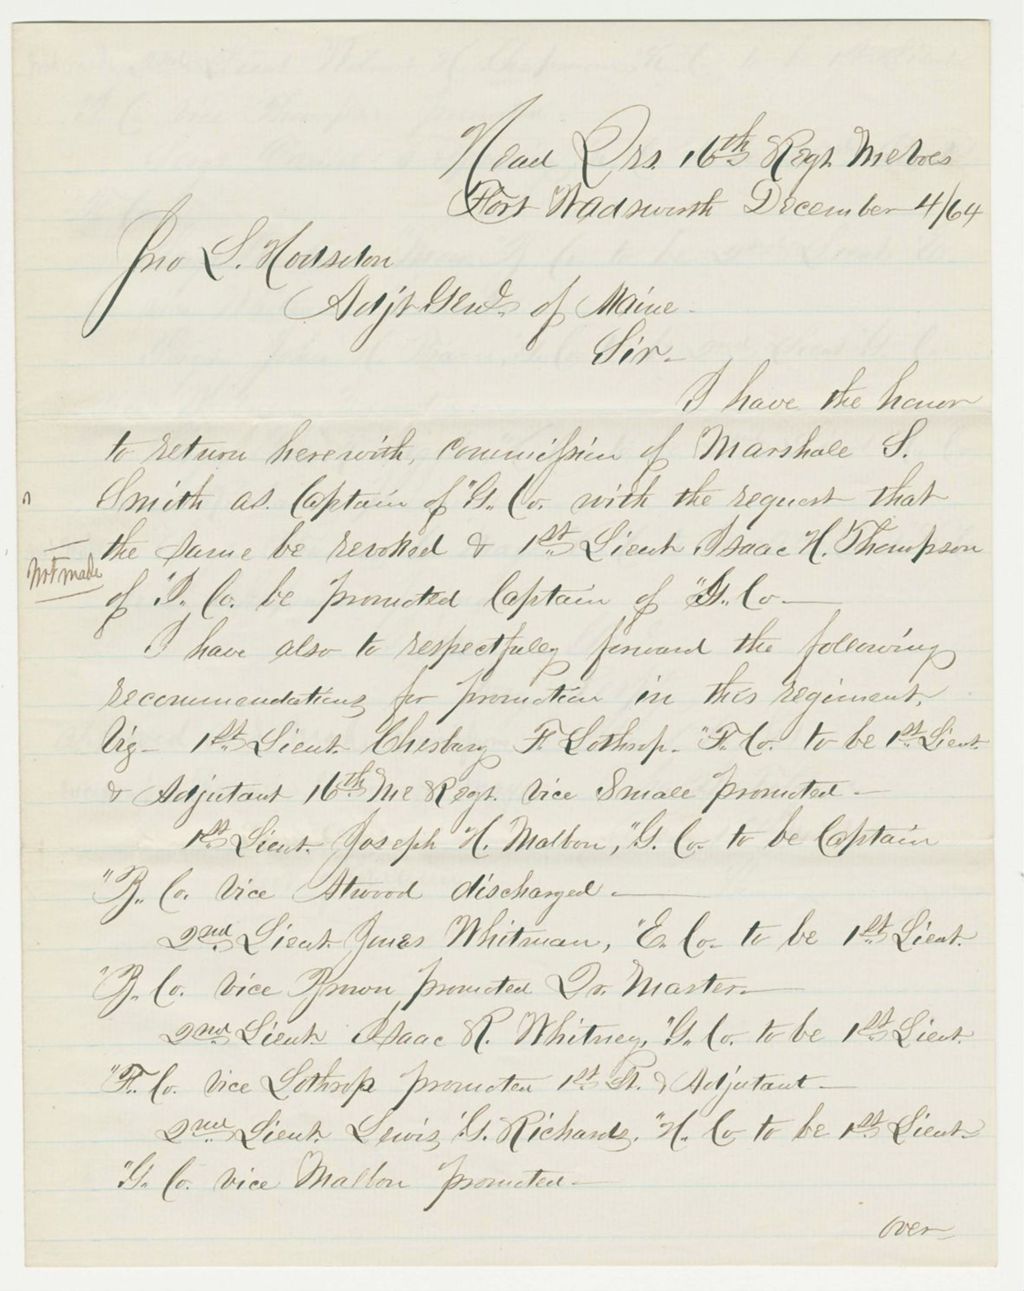 Head Qrs. 16th Regt. Me Vols
Fort Wadsworth December 4/64
Jno L. Hodsdon
Adjt Genl. of Maine.
Sir.
I have the honor
to return herewith, commission of Marshall S.
Smith as Captain of "G" Co. with the request that
the same be revoked & 1st Lieut. Isaac H. Thompson
Not made
of "I" Co. be promoted Captain of "G" Co.
I have also to respectfully forward the following
recommendations for promotion in this regiment.
Viz- 1st Lieut. Chesbury F. Lothrop. "F" Co. to be 1st Lieut
& Adjutant 16th Me Regt. vice Small promoted.
1st Lieut. Joseph H. Malbon, "G" Co. to be Captain
"B" Co. vice Atwood discharged.
2nd Lieut. Jones Whitman, "E" Co. to be 1st Lieut.
"B" Co. vice Brown promoted Qr. Master.
2nd Lieut. Isaac R. Whitney, "G" Co. to be 1st Lieut.
"F" Co. vice Lothrop promoted 1st Lt. & Adjutant
2nd Lieut. Lewis G. Richards, "H" Co to be 1st Lieut.
"G" Co. vice Malbon promoted.
over